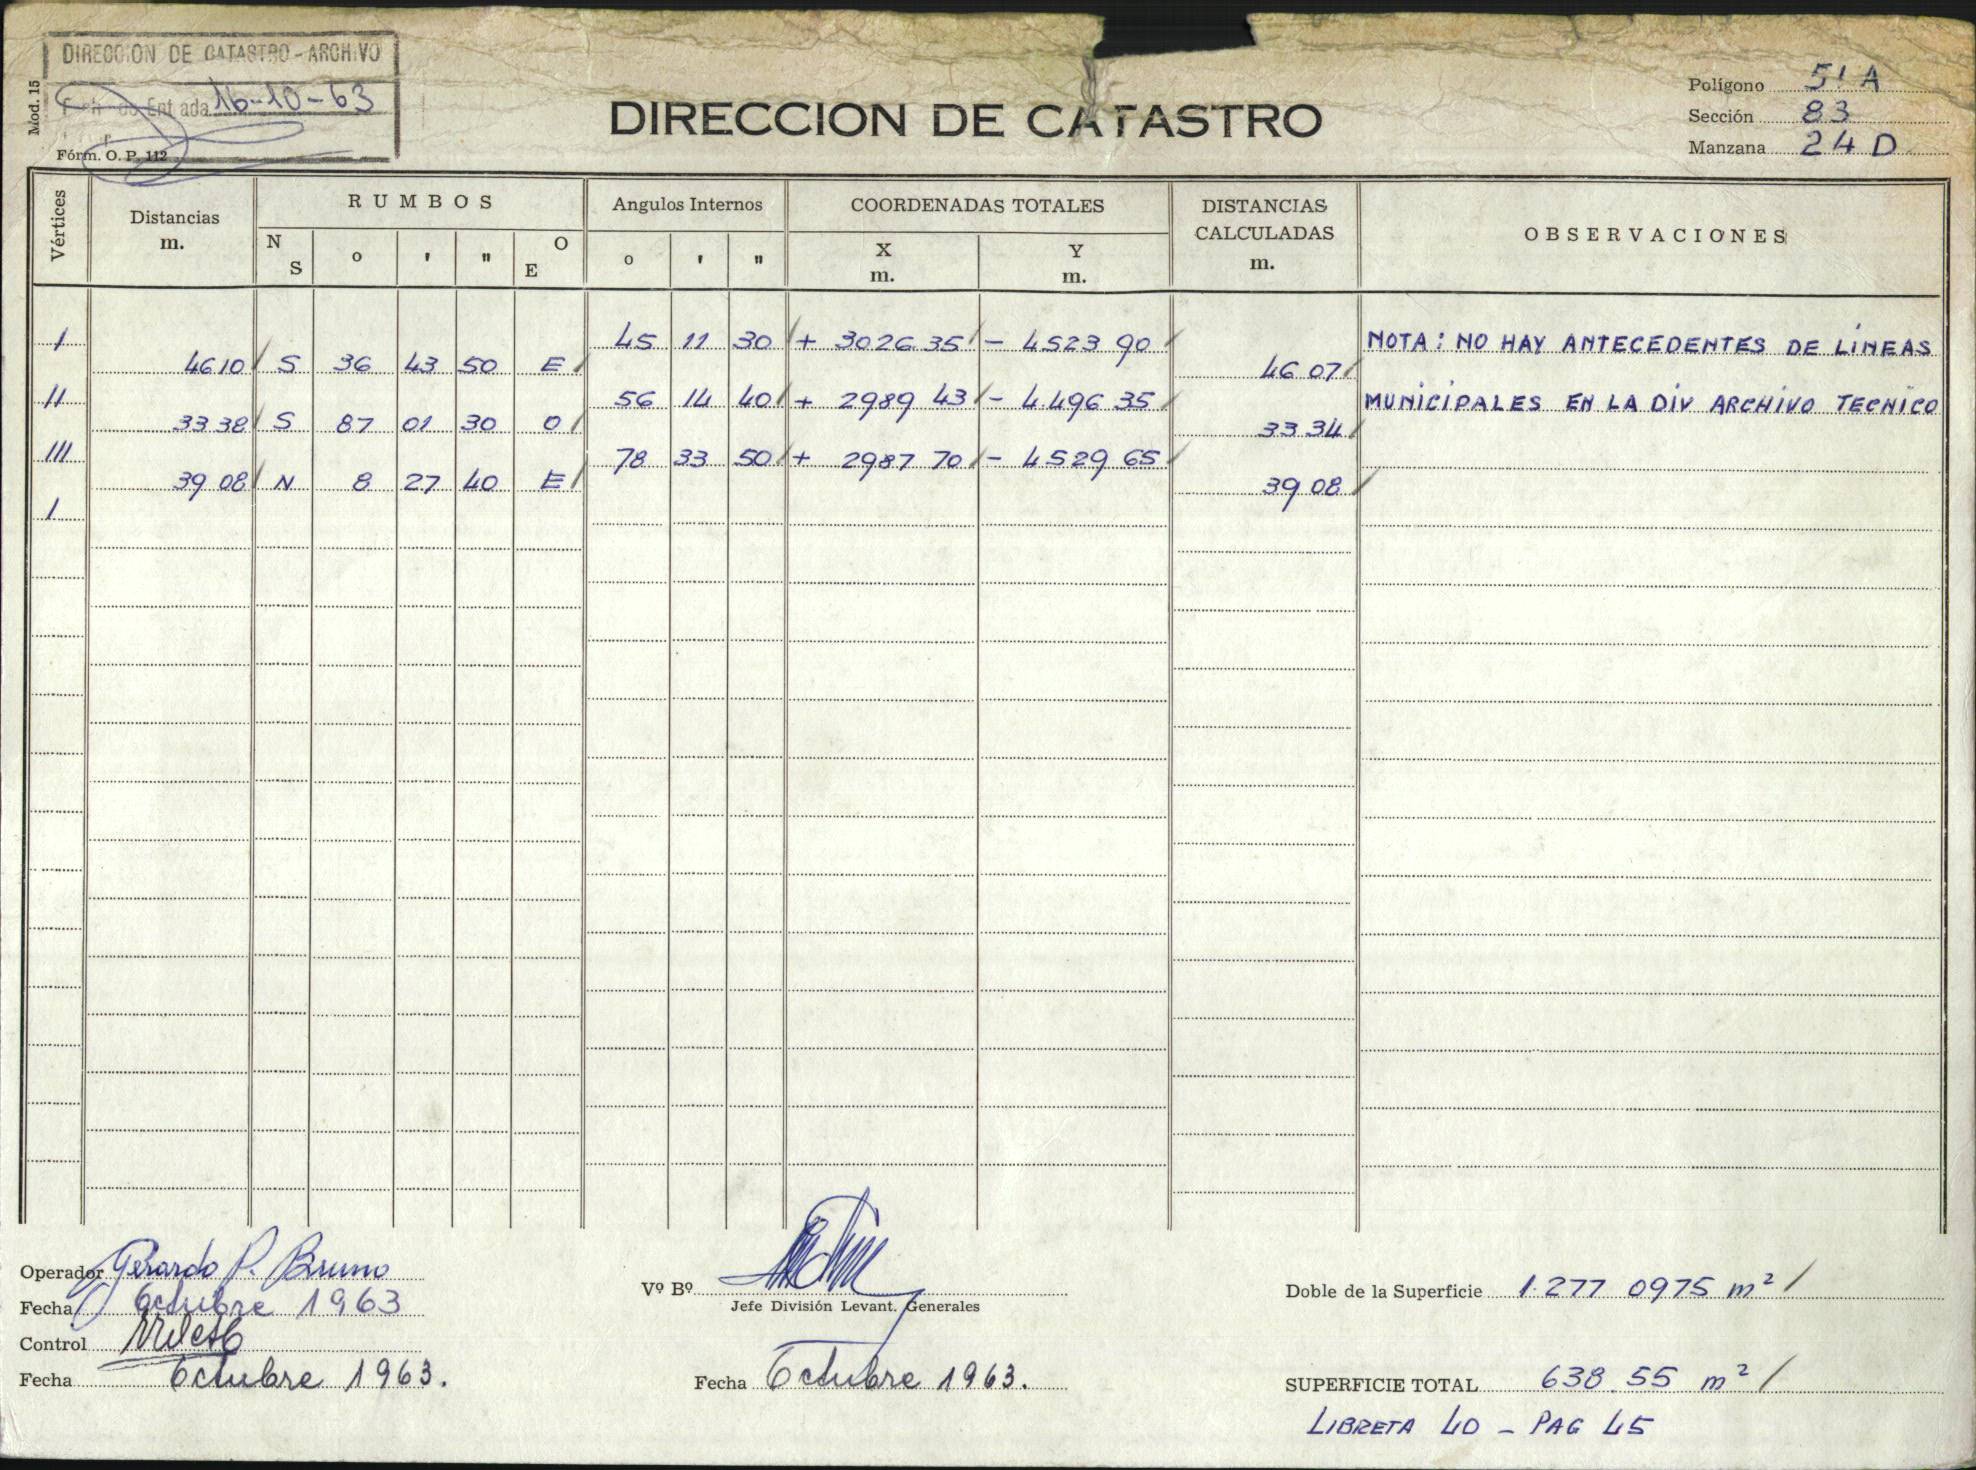 DIRECCION DE CATASTRO - ARCHIVO
Mod. 15
16-10-63
Fórm. O. P. 112
DIRECCION DE CATASTRO
Polígono 51 A
Sección 83
Manzana 24 D
Vértices
Distancias m.
RUMBOS
N S ° ' " O E
Angulos Internos
° ' "
COORDENADAS TOTALES
X m. Y m.
DISTANCIAS CALCULADAS m.
OBSERVACIONES
I 45 11 30 + 3026 35 - 4523 90 NOTA: NO HAY ANTECEDENTES DE LINEAS
46 10 S 36 43 50 E 46 07
II 56 14 40 + 2989 43 - 4496 35 MUNICIPALES EN LA DIV ARCHIVO TECNICO
33 38 S 87 01 30 O 33 34
III 78 33 50 + 2987 70 - 4529 65
39 08 N 8 27 40 E 39 08
I
Operador Gerardo P. Bruno
Fecha Octubre 1963
Control
Fecha Octubre 1963.
Vº Bº
Jefe División Levant. Generales
Fecha Octubre 1963.
Doble de la Superficie 1.277 0975 m²
SUPERFICIE TOTAL 638.55 m²
LIBRETA 40 - PAG 45